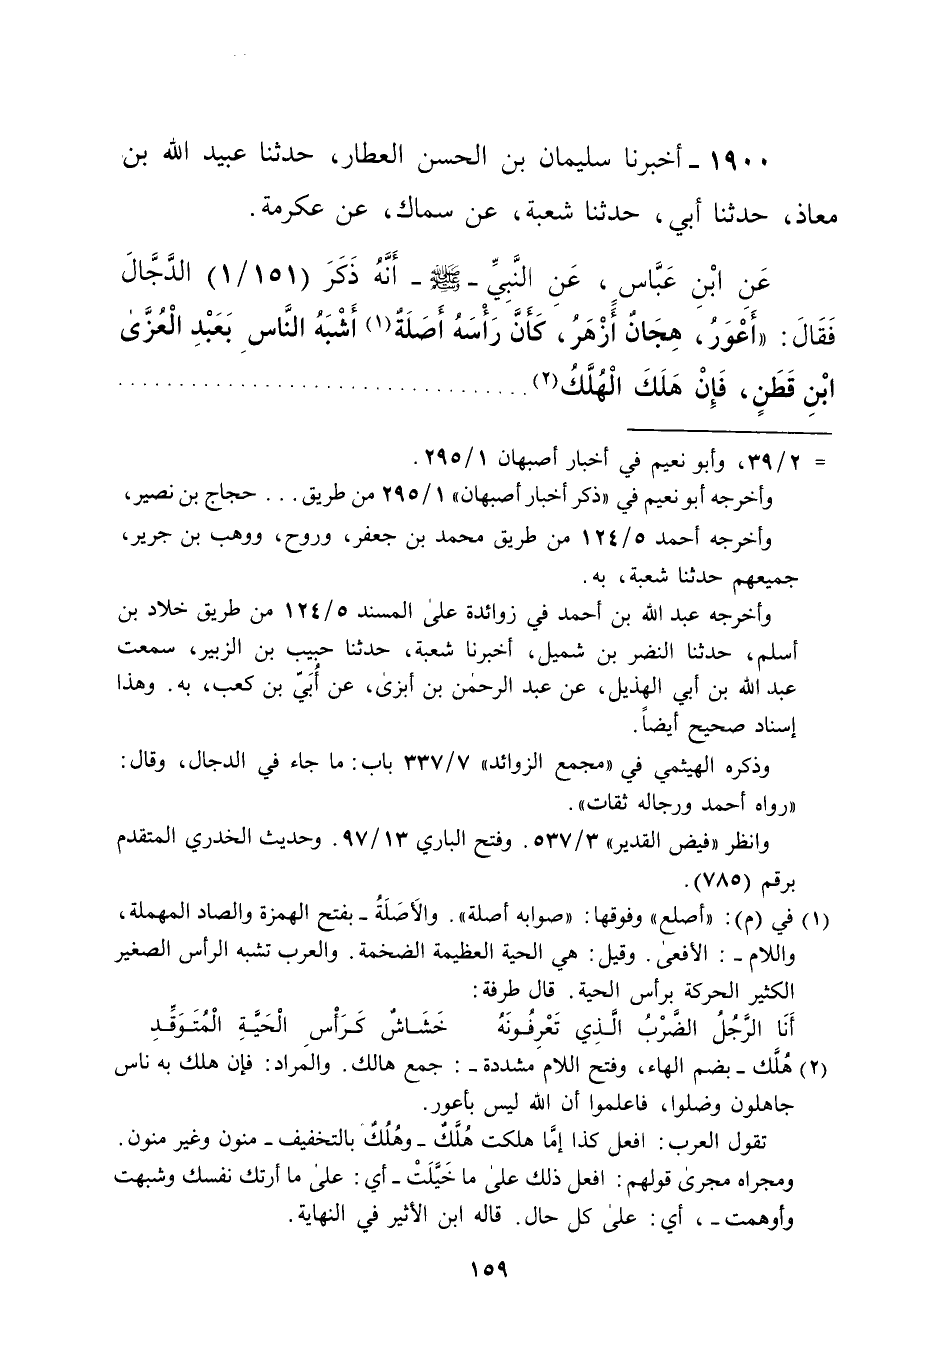 ١٩٠٠ ـ أخبرنا سليمان بن الحسن العطار، حدثنا عبيد الله بن
معاذ، حدثنا أبي، حدثنا شعبة، عن سماك، عن عكرمة.
عَنِ ابْنِ عَبَّاسٍ، عَنِ النَّبِيِّ ـ ﷺ ـ أَنَّهُ ذَكَرَ (١/١٥١) الدَّجَّالَ
فَقَالَ: «أَعْوَرُ، هِجَانٌ أَزْهَرُ، كَأَنَّ رَأْسَهُ أَصَلَةٌ(١) أَشْبَهُ النَّاسِ بِعَبْدِ الْعُزَّىٰ
ابْنِ قَطَنٍ، فَإِنْ هَلَكَ الْهُلَّكُ(٢)..............................
= ٣٩/٢، وأبو نعيم في أخبار أصبهان ٢٩٥/١.
وأخرجه أبو نعيم في «ذكر أخبار أصبهان» ٢٩٥/١ من طريق... حجاج بن نصير،
وأخرجه أحمد ١٢٤/٥ من طريق محمد بن جعفر، وروح، ووهب بن جرير،
جميعهم حدثنا شعبة، به.
وأخرجه عبد الله بن أحمد في زوائدة علىٰ المسند ١٢٤/٥ من طريق خلاد بن
أسلم، حدثنا النضر بن شميل، أخبرنا شعبة، حدثنا حبيب بن الزبير، سمعت
عبد الله بن أبي الهذيل، عن عبد الرحمٰن بن أبزىٰ، عن أُبَيّ بن كعب، به. وهذا
إسناد صحيح أيضاً.
وذكره الهيثمي في «مجمع الزوائد» ٣٣٧/٧ باب: ما جاء في الدجال، وقال:
«رواه أحمد ورجاله ثقات».
وانظر «فيض القدير» ٥٣٧/٣. وفتح الباري ٩٧/١٣. وحديث الخدري المتقدم
برقم (٧٨٥).
(١) في (م): «أصلع» وفوقها: «صوابه أصلة». والأَصَلَةُ ـ بفتح الهمزة والصاد المهملة،
واللام ـ : الأفعىٰ. وقيل: هي الحية العظيمة الضخمة. والعرب تشبه الرأس الصغير
الكثير الحركة برأس الحية. قال طرفة:
أَنَا الرَّجُلُ الضَّرْبُ الَّذِي تَعْرِفُونَهُ خَشَاشٌ كَرَأْسِ الْحَيَّةِ الْمُتَوَقِّدِ
(٢) هُلَّك ـ بضم الهاء، وفتح اللام مشددة ـ : جمع هالك. والمراد: فإن هلك به ناس
جاهلون وضلوا، فاعلموا أن الله ليس بأعور.
تقول العرب: افعل كذا إمَّا هلكت هُلَّكٌ ـ وهُلُكٌ بالتخفيف ـ منون وغير منون.
ومجراه مجرىٰ قولهم: افعل ذلك علىٰ ما خَيَّلَتْ ـ أي: علىٰ ما أرتك نفسك وشبهت
وأوهمت ـ ، أي: علىٰ كل حال. قاله ابن الأثير في النهاية.
١٥٩